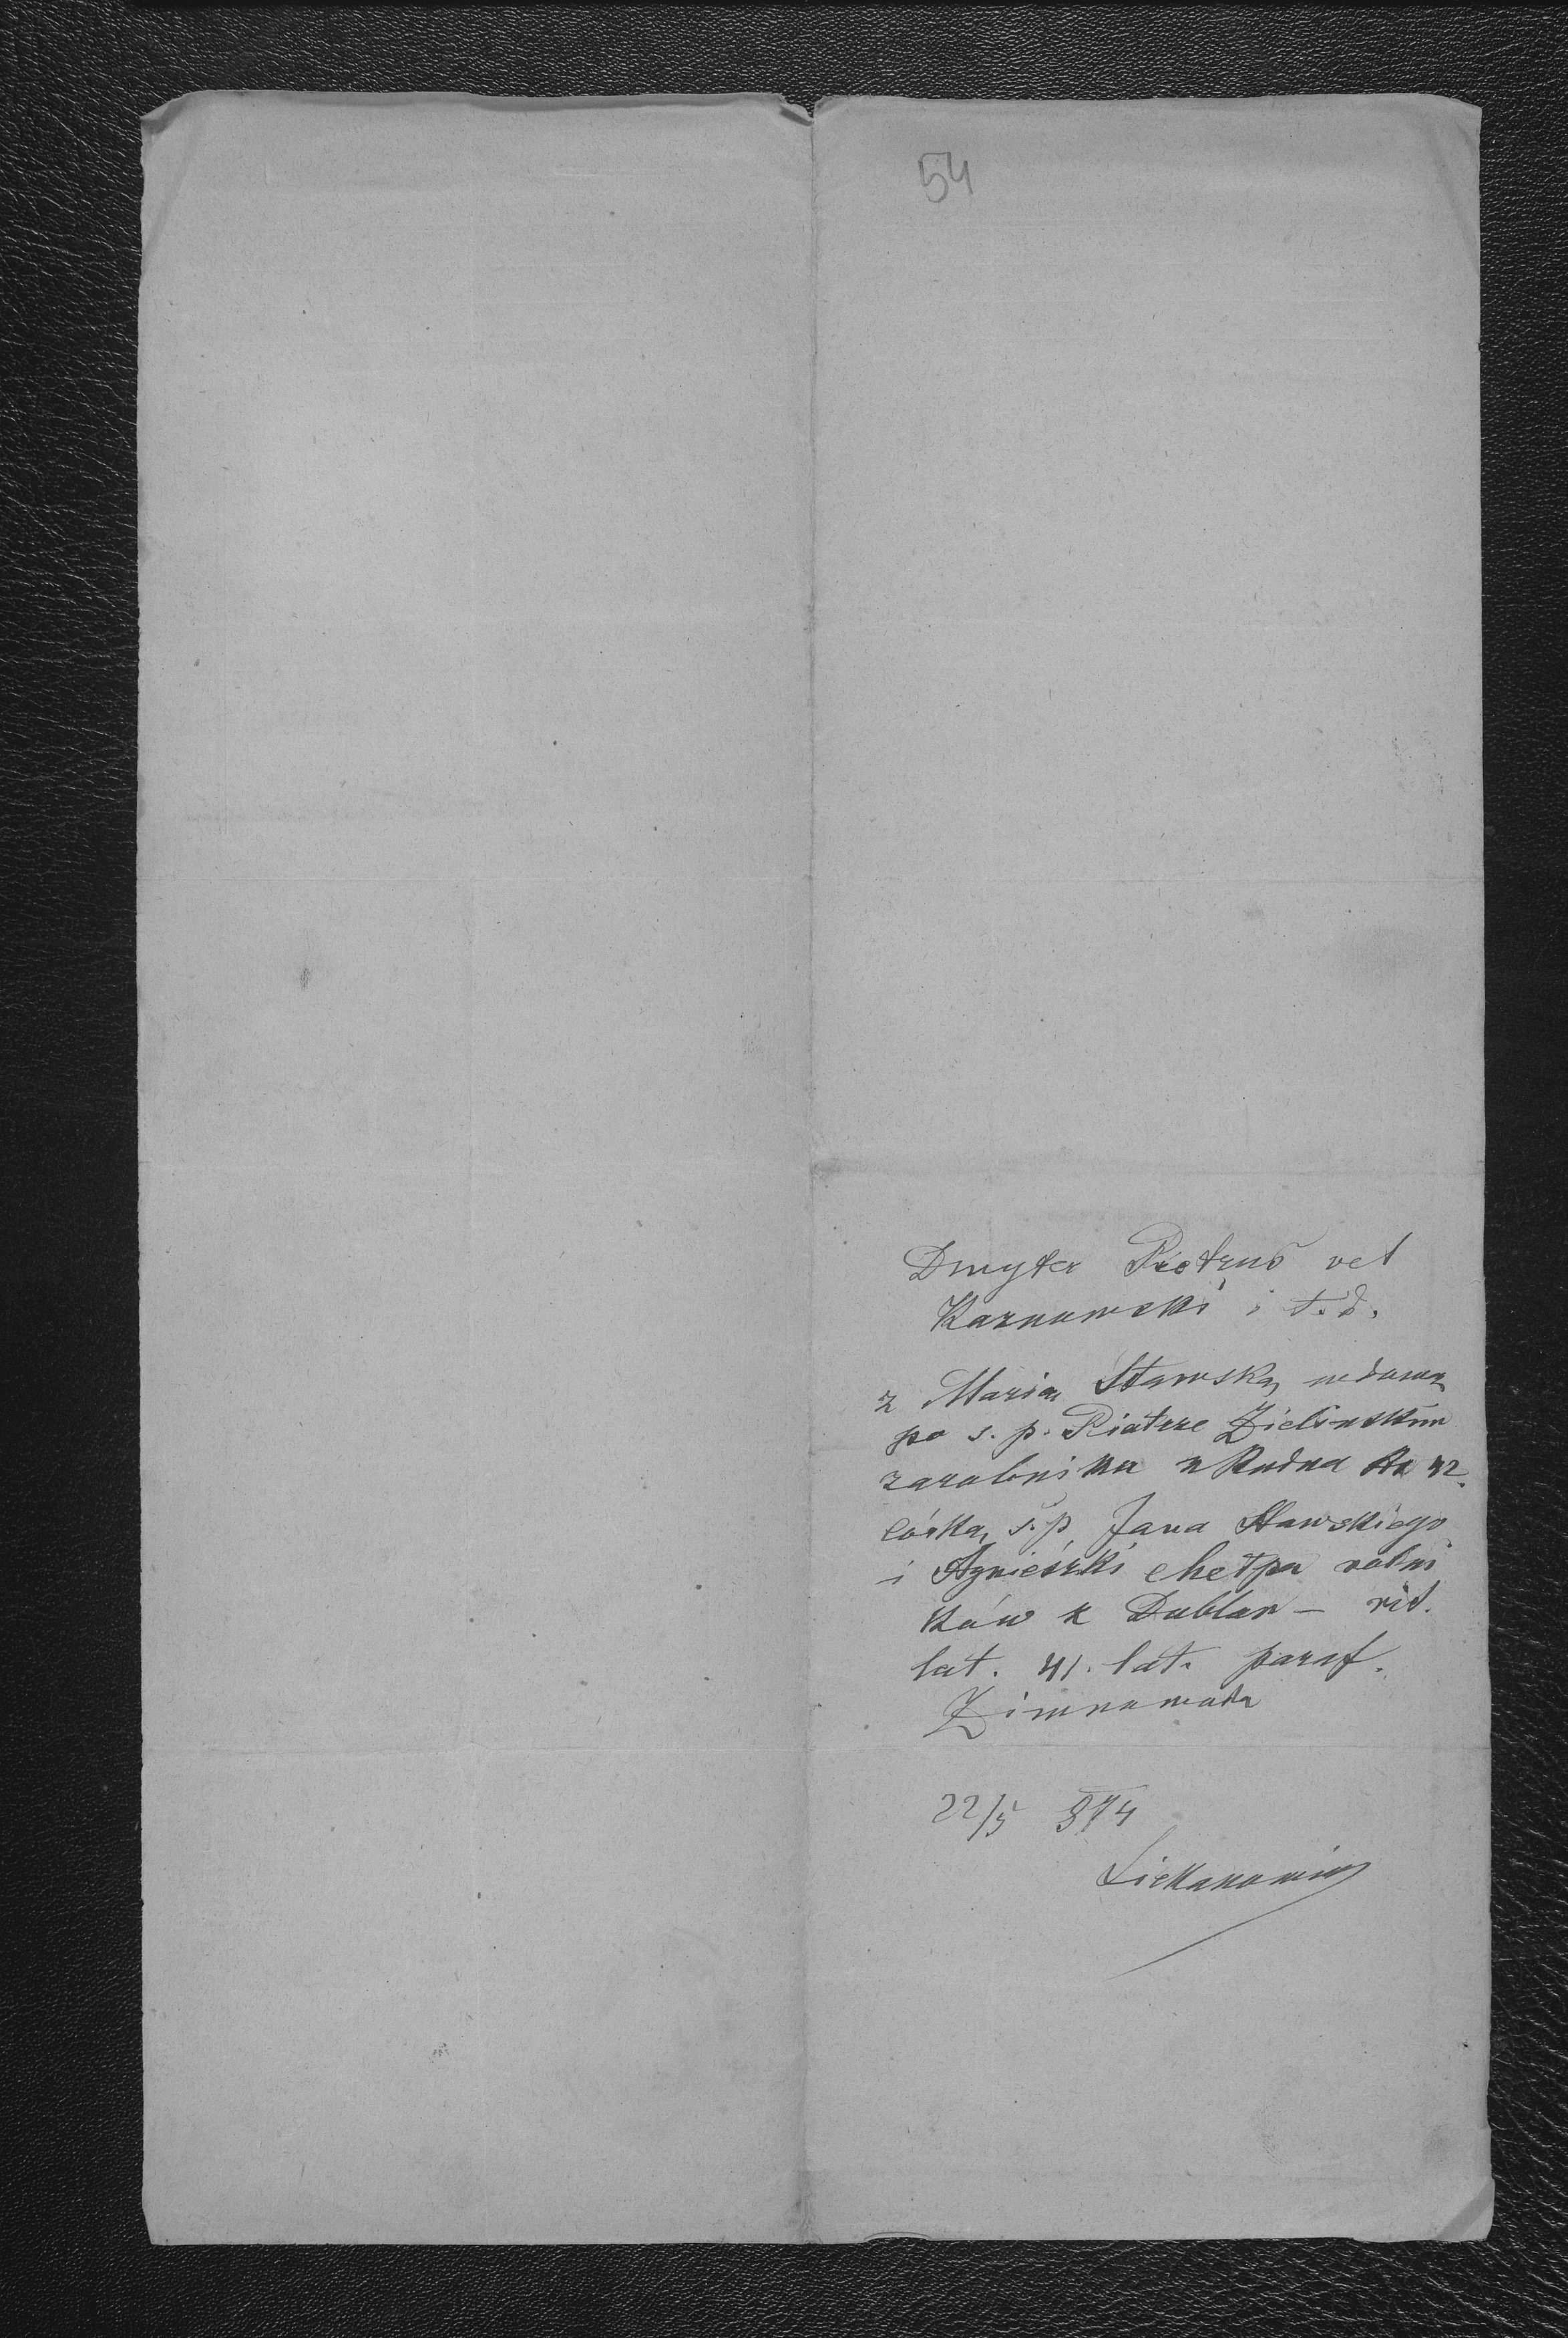 54
Dmyter Pietrus vel
Karnowski i t.d.
z Marią Stawską, wdową
po s. p. Piotrze Zielinskim
zarobniku z Rudna 42.
córką, s. p. Jana Stawskiego
i Agnieszki chełpa rolni
ków z Dublan — rit.
lat. 41. lat. paraf.
Zimnawoda
22/5 874